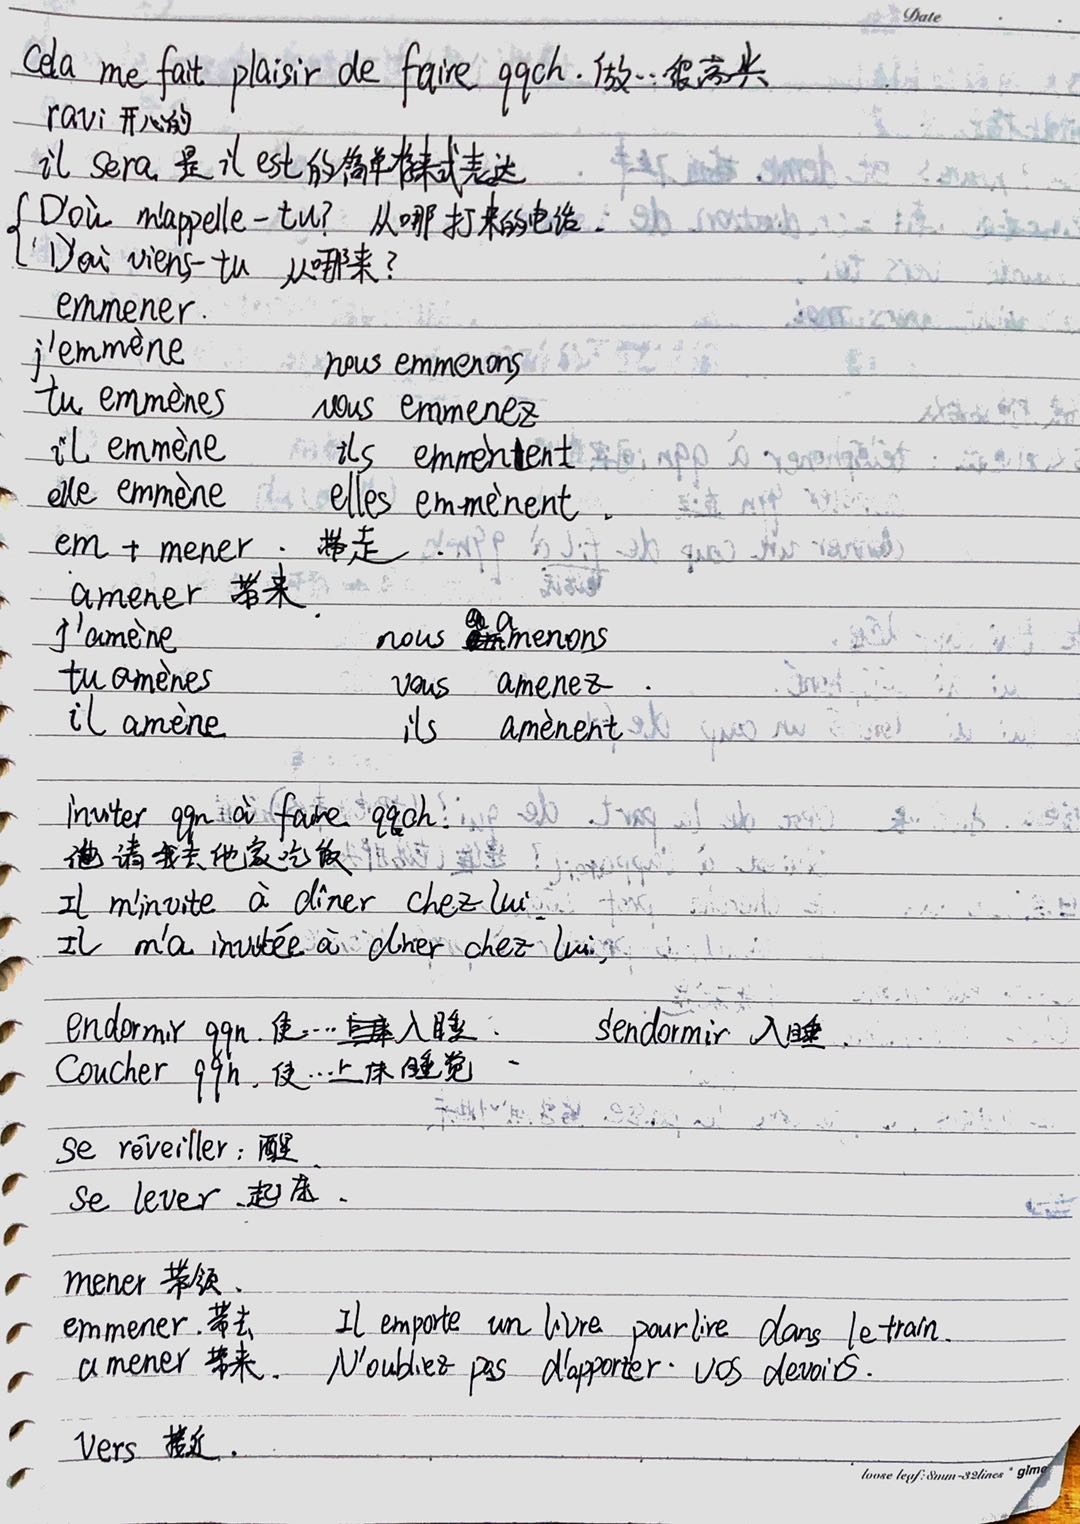 Date
Cela me fait plaisir de faire qqch. 做…很高兴
ravi 开心的
il sera 是 il est 的简单将来式表达
D'où m'appelle-tu? 从哪打来的电话:
D'où viens-tu 从哪来?
emmener.
j'emmène nous emmenons
tu emmènes vous emmenez
il emmène ils emmènent
elle emmène elles emmènent.
em + mener. 带走.
amener 带来.
j'amène nous amenons
tu amènes vous amenez.
il amène ils amènent
inviter qqn à faire qqch.
邀请我去他家吃饭
Il m'invite à dîner chez lui.
Il m'a invitée à dîner chez lui,
endormir qqn. 使…入睡. s'endormir 入睡.
Coucher qqn. 使…上床睡觉
se réveiller: 醒
se lever. 起床.
mener 带领.
emmener. 带去 Il emporte un livre pour lire dans le train.
amener 带来. N'oubliez pas d'apporter. vos devoirs.
Vers 接近.
loose leaf: 8mm-32lines